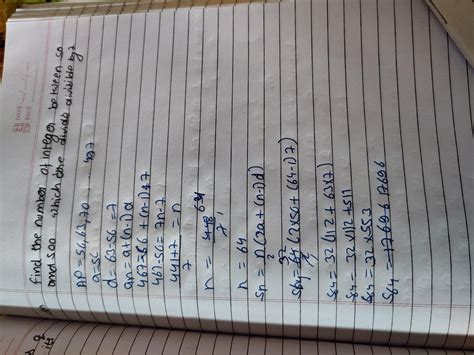 Find the number of integer between 50
and 500 which are divisible by 7
AP = 56, 63, 70 .... 497
a = 56
d = 63-56 = 7
an = a+(n-1)d
497 = 56 + (n-1)7
497-56 = 7n-7
441+7 = n
7
n =
7
n = 64
Sn = n (2a + (n-1)d)
2
S64 = 64 (2(56 + (64-1)7)
S64 = 32 (112 + 63x7)
S64 = 32 x 112 +
S64 = 32 x 553
S64 = 17696